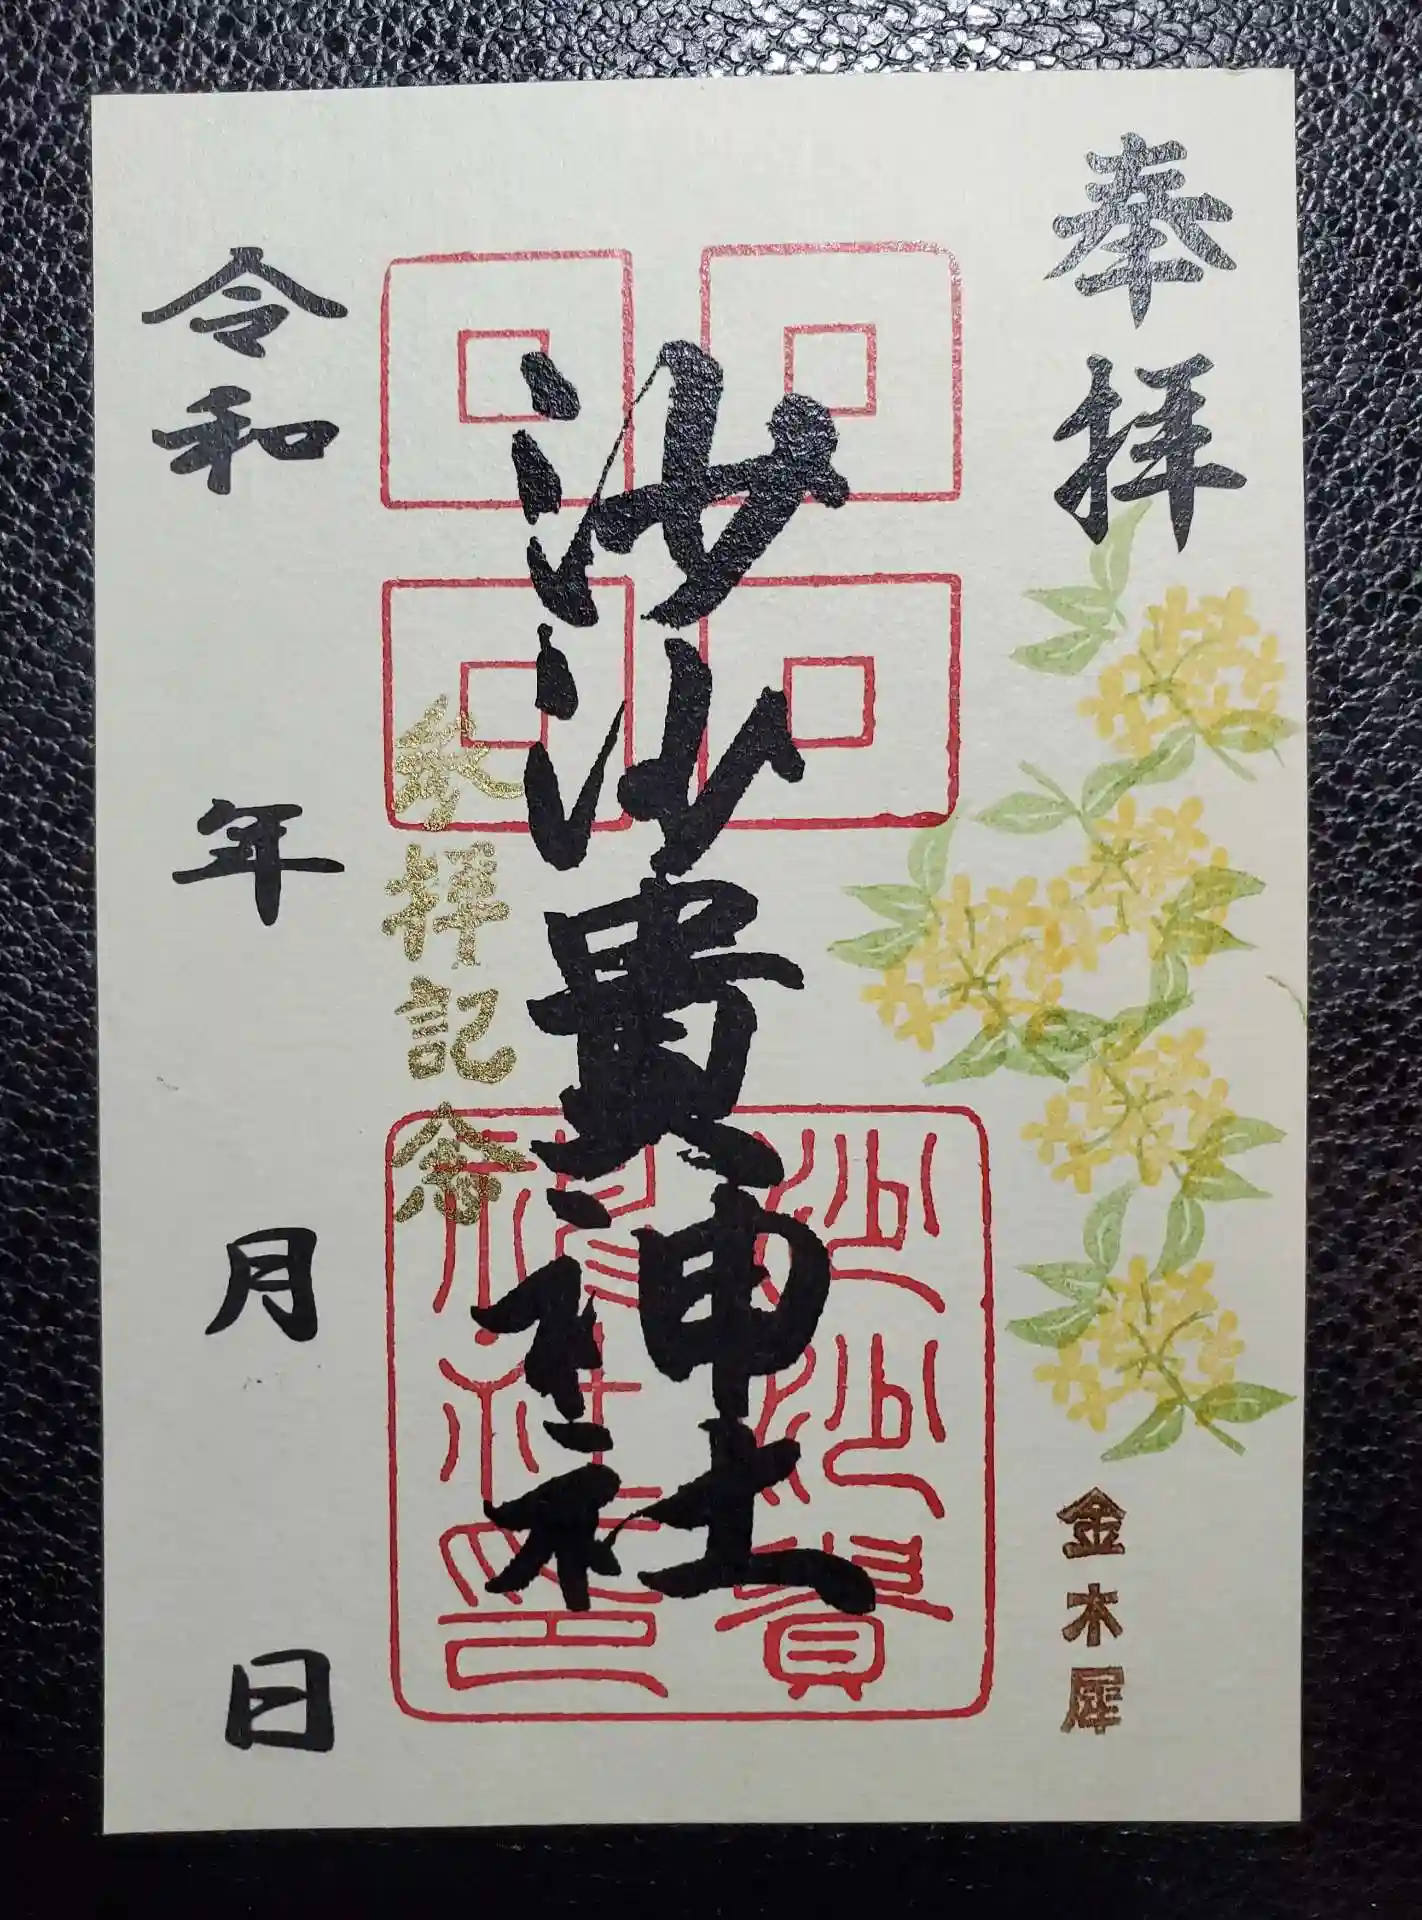 奉拝
金木犀
沙沙貴神社
沙沙貴
神社印
参拝記念
令和 年 月 日